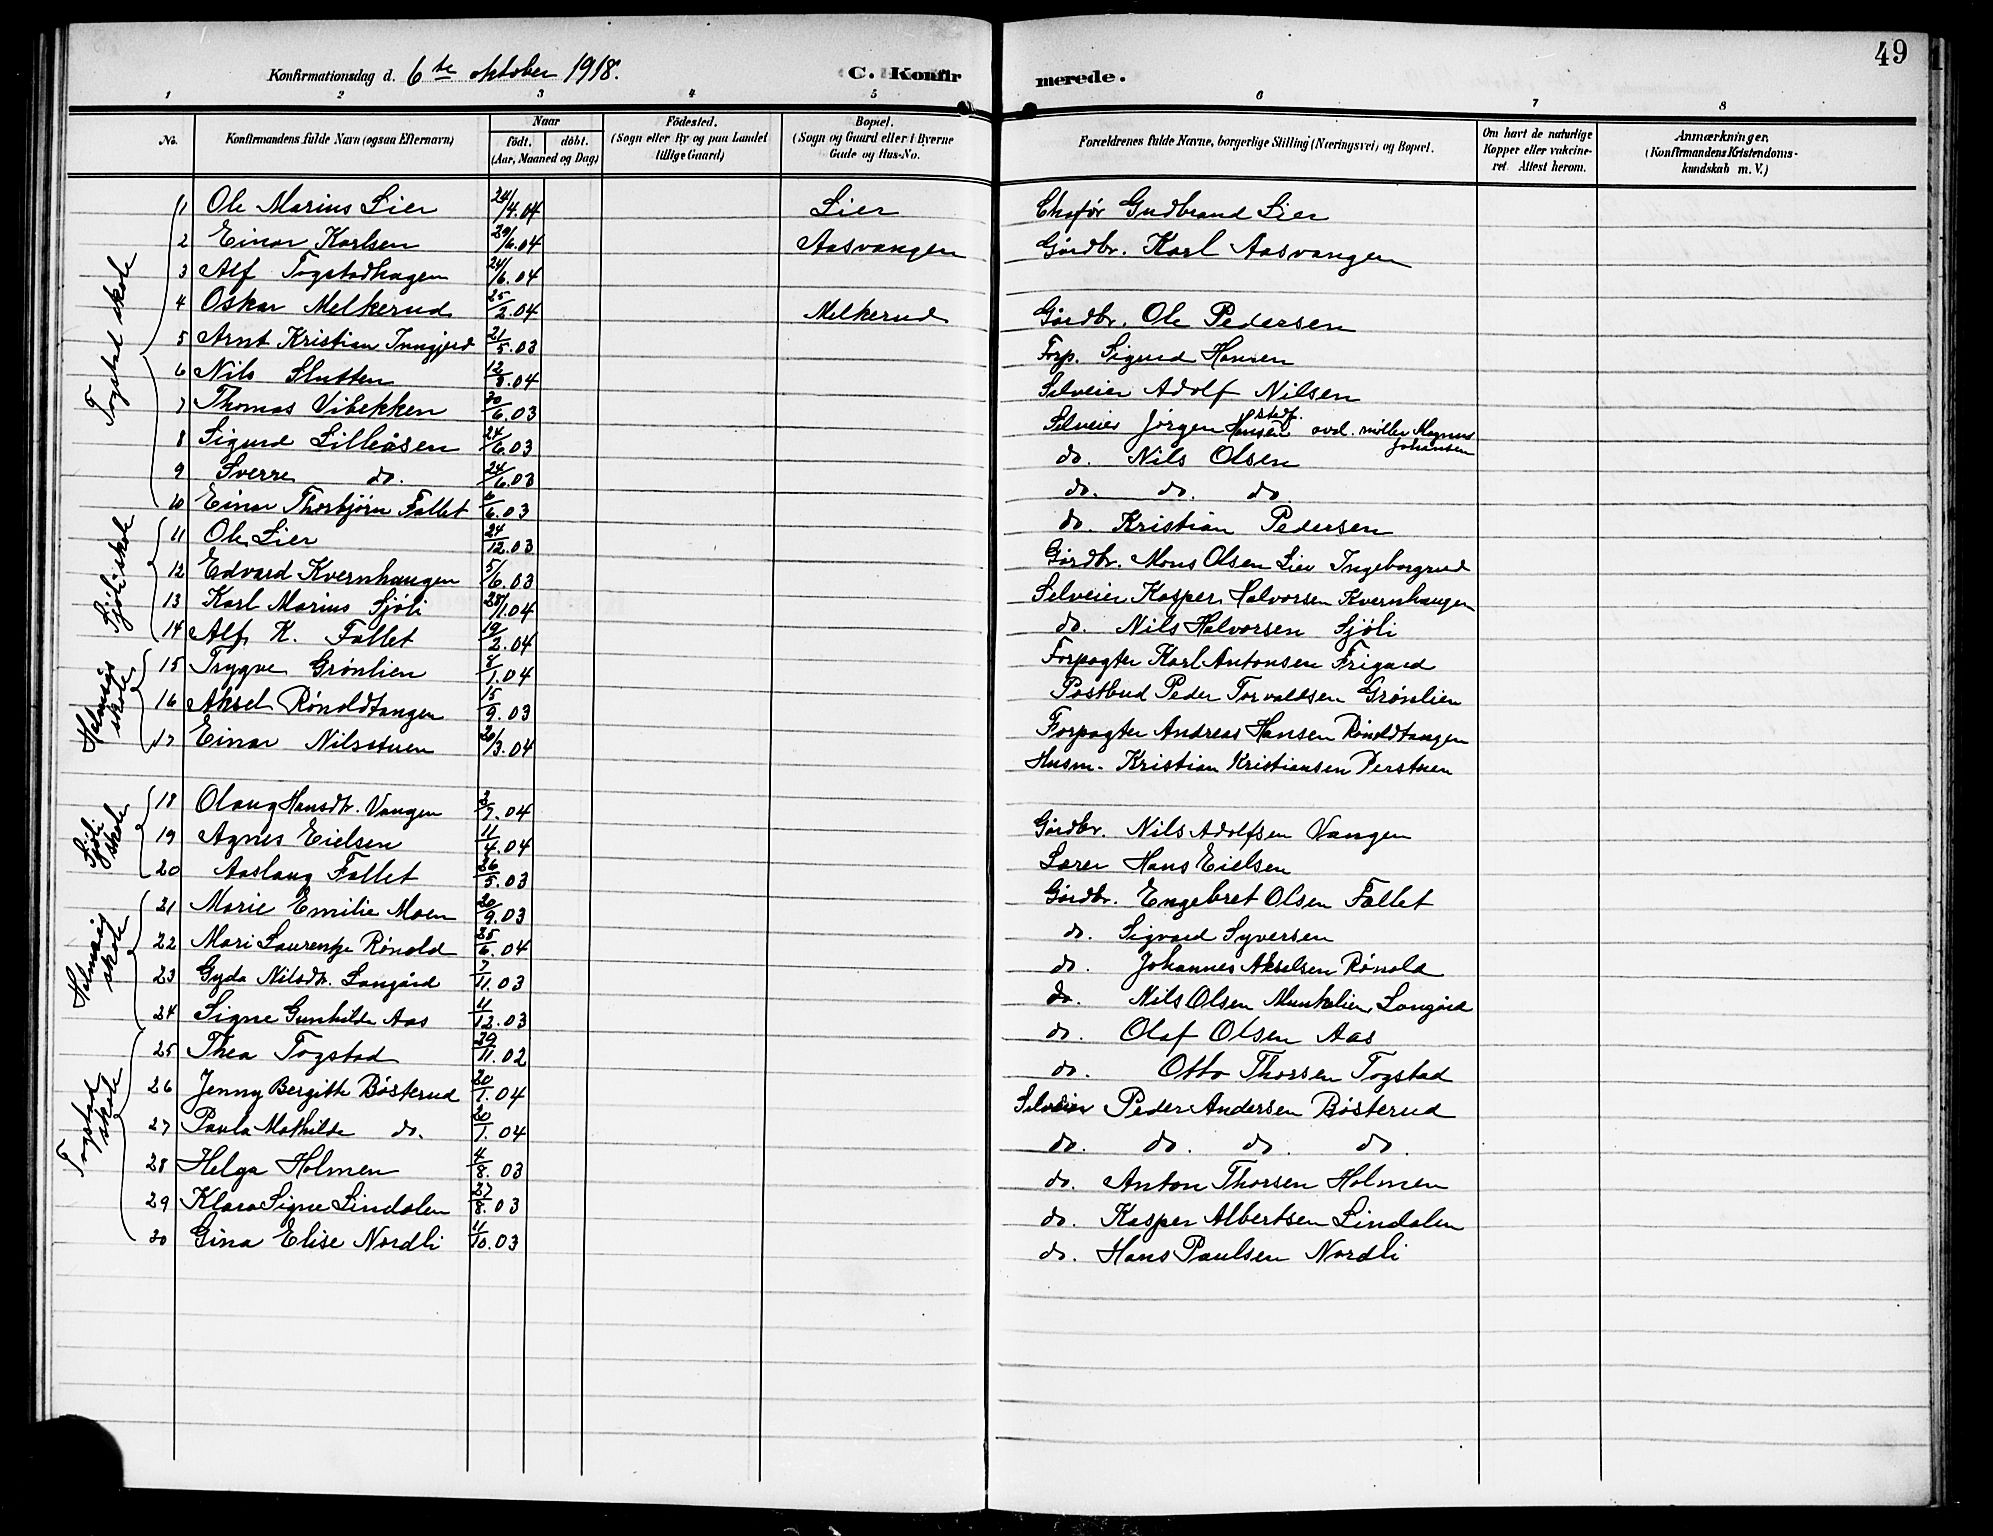 49
Konfirmationsdag d. 6te oktober 1918. C. Konfirmerede.
1 2 3 4 5 6 7 8
No. Konfirmandens fulde Navn (ogsaa Efternavn) Naar født. døbt. (Aar, Maaned og Dag) Fødested. (Sogn eller By og paa Landet tillige Gaard) Bopæl. (Sogn og Gaard eller i Byerne Gade og Hus-No. Forældrenes fulde Navne, borgerlige Stilling (Næringsvei) og Bopæl. Om havt de naturlige Kopper eller vakcineret. Attest herom. Anmærkninger. (Konfirmandens Kristendomskundskab m. V.)
Togstad skole
1 Ole Marius Lier 24/4.04 Lier Chafør Gudbrand Lier
2 Einar Karlsen 29/6.04 Aasvangen Gårdbr. Karl Aasvangen
3 Alf Togstadhagen 24/6.04
4 Oskar Melkerud 25/2.04 Melkerud Gårdbr. Ole Pedersen
5 Arnt Kristian Inngjerd 21/5.03 Forp. Sigurd Hansen
6 Nils Slutten 12/8.04 Selveier Adolf Nilsen
7 Thomas Vibekken 30/6.03 Selveier Jørgen Hansen stedf. avd. møller Magnus Johansen
8 Sigurd Lilleåsen 24/6.03 do. Nils Olsen
9 Sverre do. 24/6.03 do. do. do.
10 Einar Thorbjørn Fallet 6/6.03 do. Kristian Pedersen
Sjøli skole
11 Ole Lier 24/12.03 Gårdbr. Mons Olsen Lier Ingeborgrud
12 Edvard Kvernhaugen 5/6.03 Selveier Kasper Halvorsen Kvernhaugen
13 Karl Marius Sjøli 28/1.04 do. Nils Halvorsen Sjøli
14 Alf K. Fallet 19/2.04 Forpagter Karl Antonsen Frigård
Holmsig skole
15 Trygve Grønlien 8/1.04 Postbud Peder Torvaldsen Grønlien
16 Aksel Rønoldtangen 15/9.03 Forpagter Andreas Hansen Rønoldtangen
17 Einar Nilsstuen 20/3.04 Husm. Kristian Kristiansen Perstuen
Sjøli skole
18 Olaug Hansdtr. Vangen 3/7.04 Gårdbr. Nils Adolfsen Vangen
19 Agnes Eielsen 11/4.04 Lærer Hans Eielsen
20 Aaslaug Fallet 26/5.03 Gårdbr. Engebret Olsen Fallet
Holmsig skole
21 Marie Emilie Moen 20/9.03 do. Sigvard Syversen
22 Mari Laurentze Rønold 25/6.04 do. Johannes Akselsen Rønold
23 Gyda Nilsdtr. Langård 7/11.03 do. Nils Olsen Munkelien, Langård
24 Signe Gunhilde Aas 11/12.03 do. Olaf Olsen Aas
Togstad skole
25 Thea Togstad 29/11.02 do. Otto Thorsen Togstad
26 Jenny Bergitte Bøsterud 20/1.04 Selveier Peder Andersen Bøsterud
27 Paula Mathilde do. 20/1.04 do. do. do. do.
28 Helga Holmen 4/8.03 do. Anton Thorsen Holmen
29 Klara Signe Lindalen 27/8.03 do. Kasper Albertsen Lindalen
30 Gina Elise Nordli 11/10.03 do. Hans Paulsen Nordli